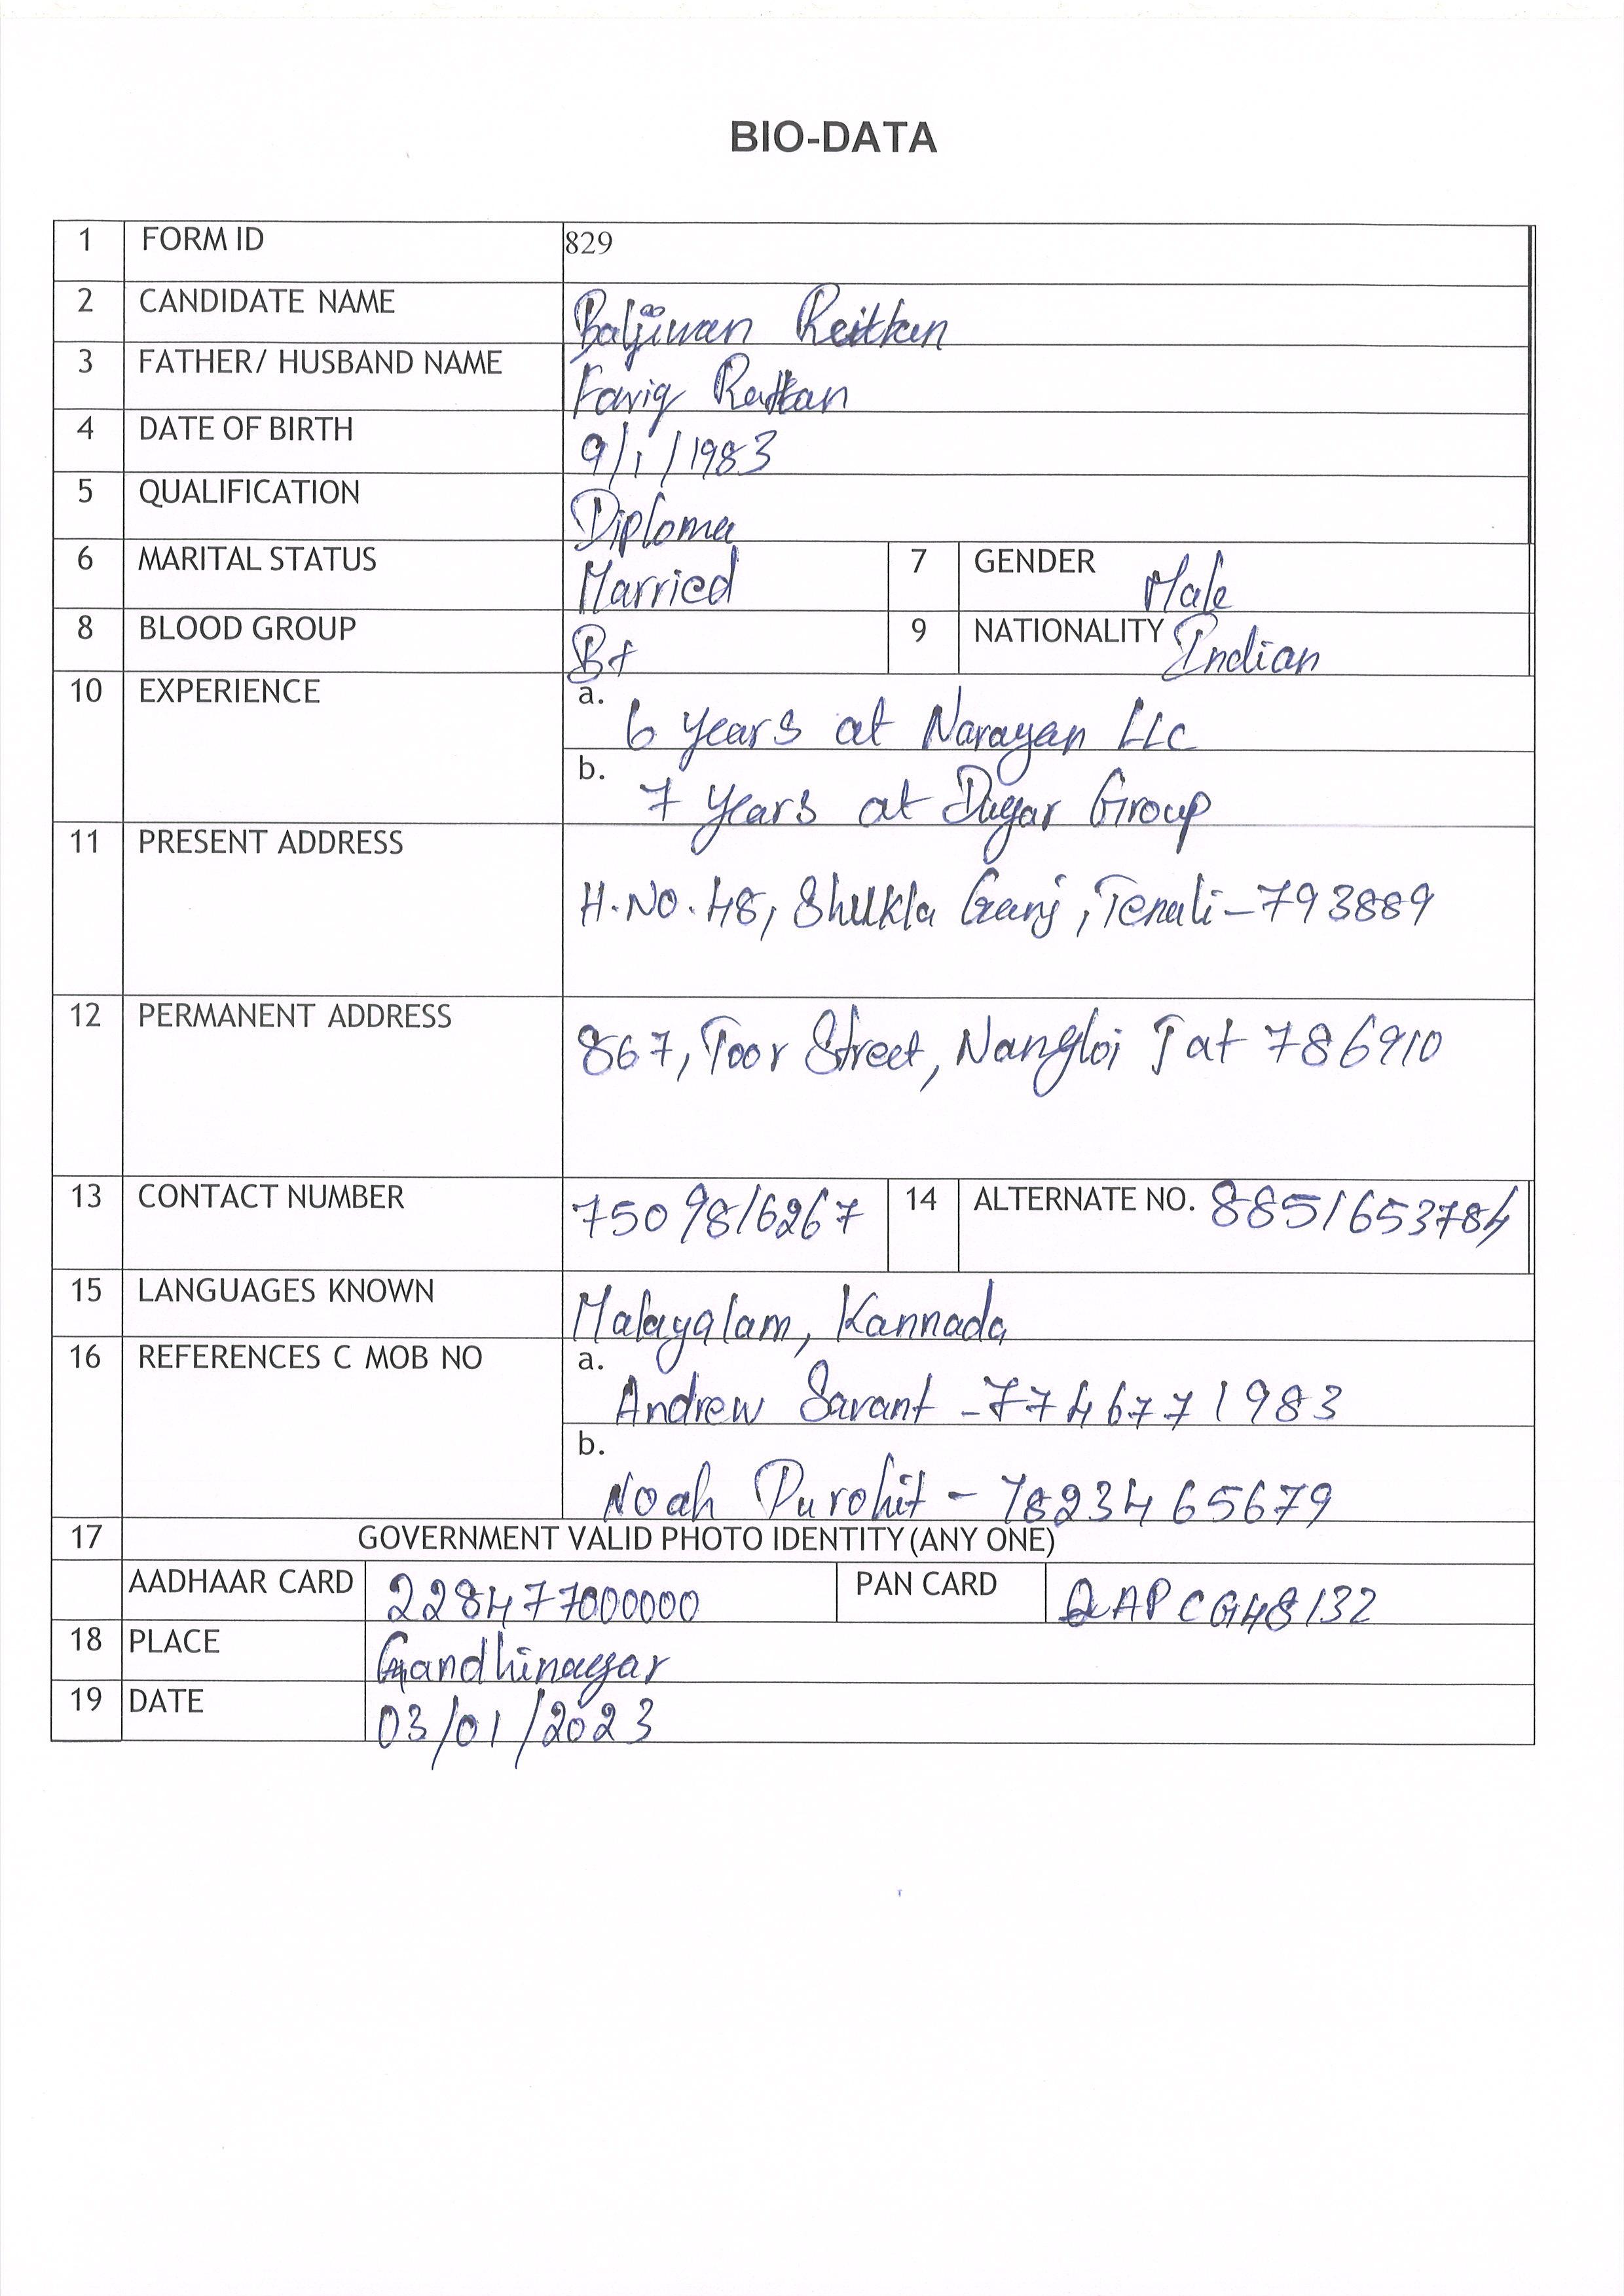 BIO-DATA
1 FORM ID 829
2 CANDIDATE NAME Baljiwan Rattan
3 FATHER/ HUSBAND NAME Fariq Rattan
4 DATE OF BIRTH 9/1/1983
5 QUALIFICATION Diploma
6 MARITAL STATUS Married 7 GENDER Male
8 BLOOD GROUP B+ 9 NATIONALITY Indian
10 EXPERIENCE a. 6 years at Narayan LLC
b. 7 years at Dugar Group
11 PRESENT ADDRESS
H.NO. 48, Shukla Ganj, Tenali-793889
12 PERMANENT ADDRESS
867, Toor Street, Nangloi Jat 786910
13 CONTACT NUMBER 7509816267 14 ALTERNATE NO. 8851653784
15 LANGUAGES KNOWN Malayalam, Kannada
16 REFERENCES C MOB NO a. Andrew Savant - 7746771983
b. Noah Purohit - 7823465679
17 GOVERNMENT VALID PHOTO IDENTITY(ANY ONE)
AADHAAR CARD 228477000000 PAN CARD QAPCG48132
18 PLACE Gandhinagar
19 DATE 03/01/2023